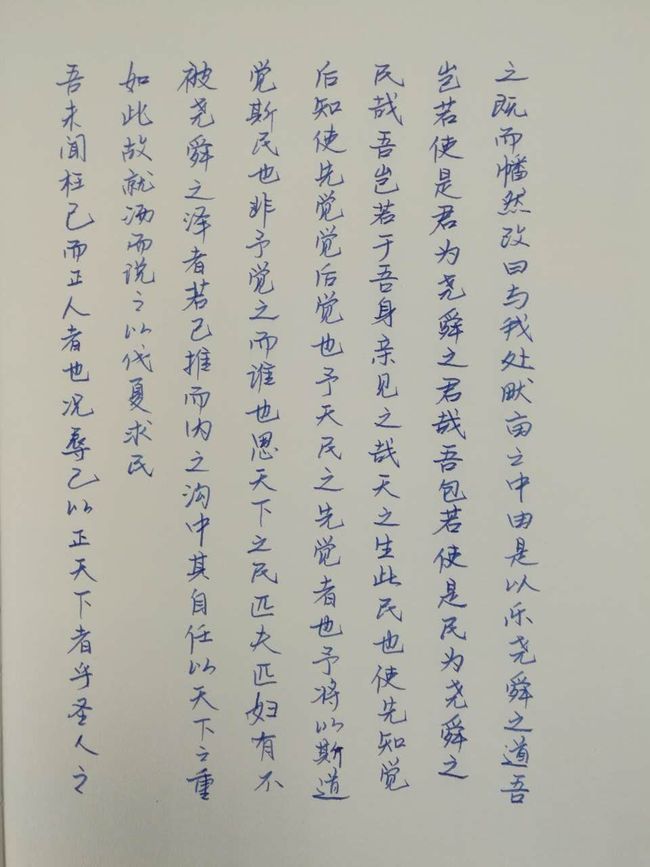 之既而幡然改曰与我处畎亩之中由是以乐尧舜之道吾
岂若使是君为尧舜之君哉吾包若使是民为尧舜之
民哉吾岂若于吾身亲见之哉天之生此民也使先知觉
后知使先觉觉后觉也予天民之先觉者也予将以斯道
觉斯民也非予觉之而谁也思天下之民匹夫匹妇有不
被尧舜之泽者若己推而内之沟中其自任以天下之重
如此故就汤而说之以伐夏求民
吾未闻枉己而正人者也况辱己以正天下者乎圣人之